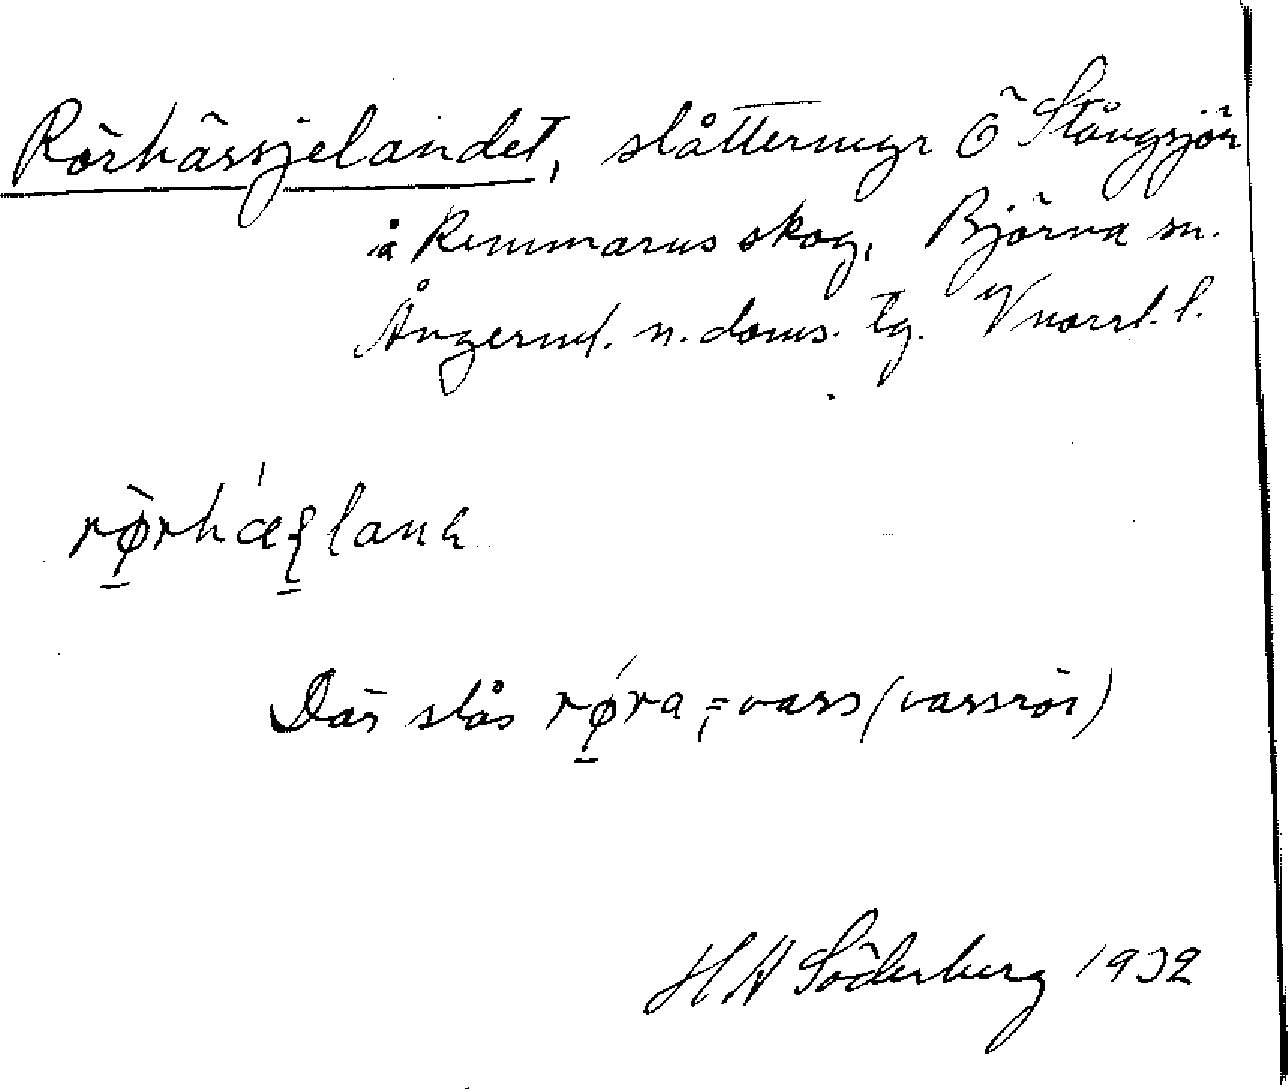 Rörhässjelandet, slåttermyr Ö Stångsjön
å Remmarns skog, Björna sn.
Ångerml. n. doms. tg. Vnorrl. l.
Där slås røra, = vass (vassrör)
H A Söderberg 1932